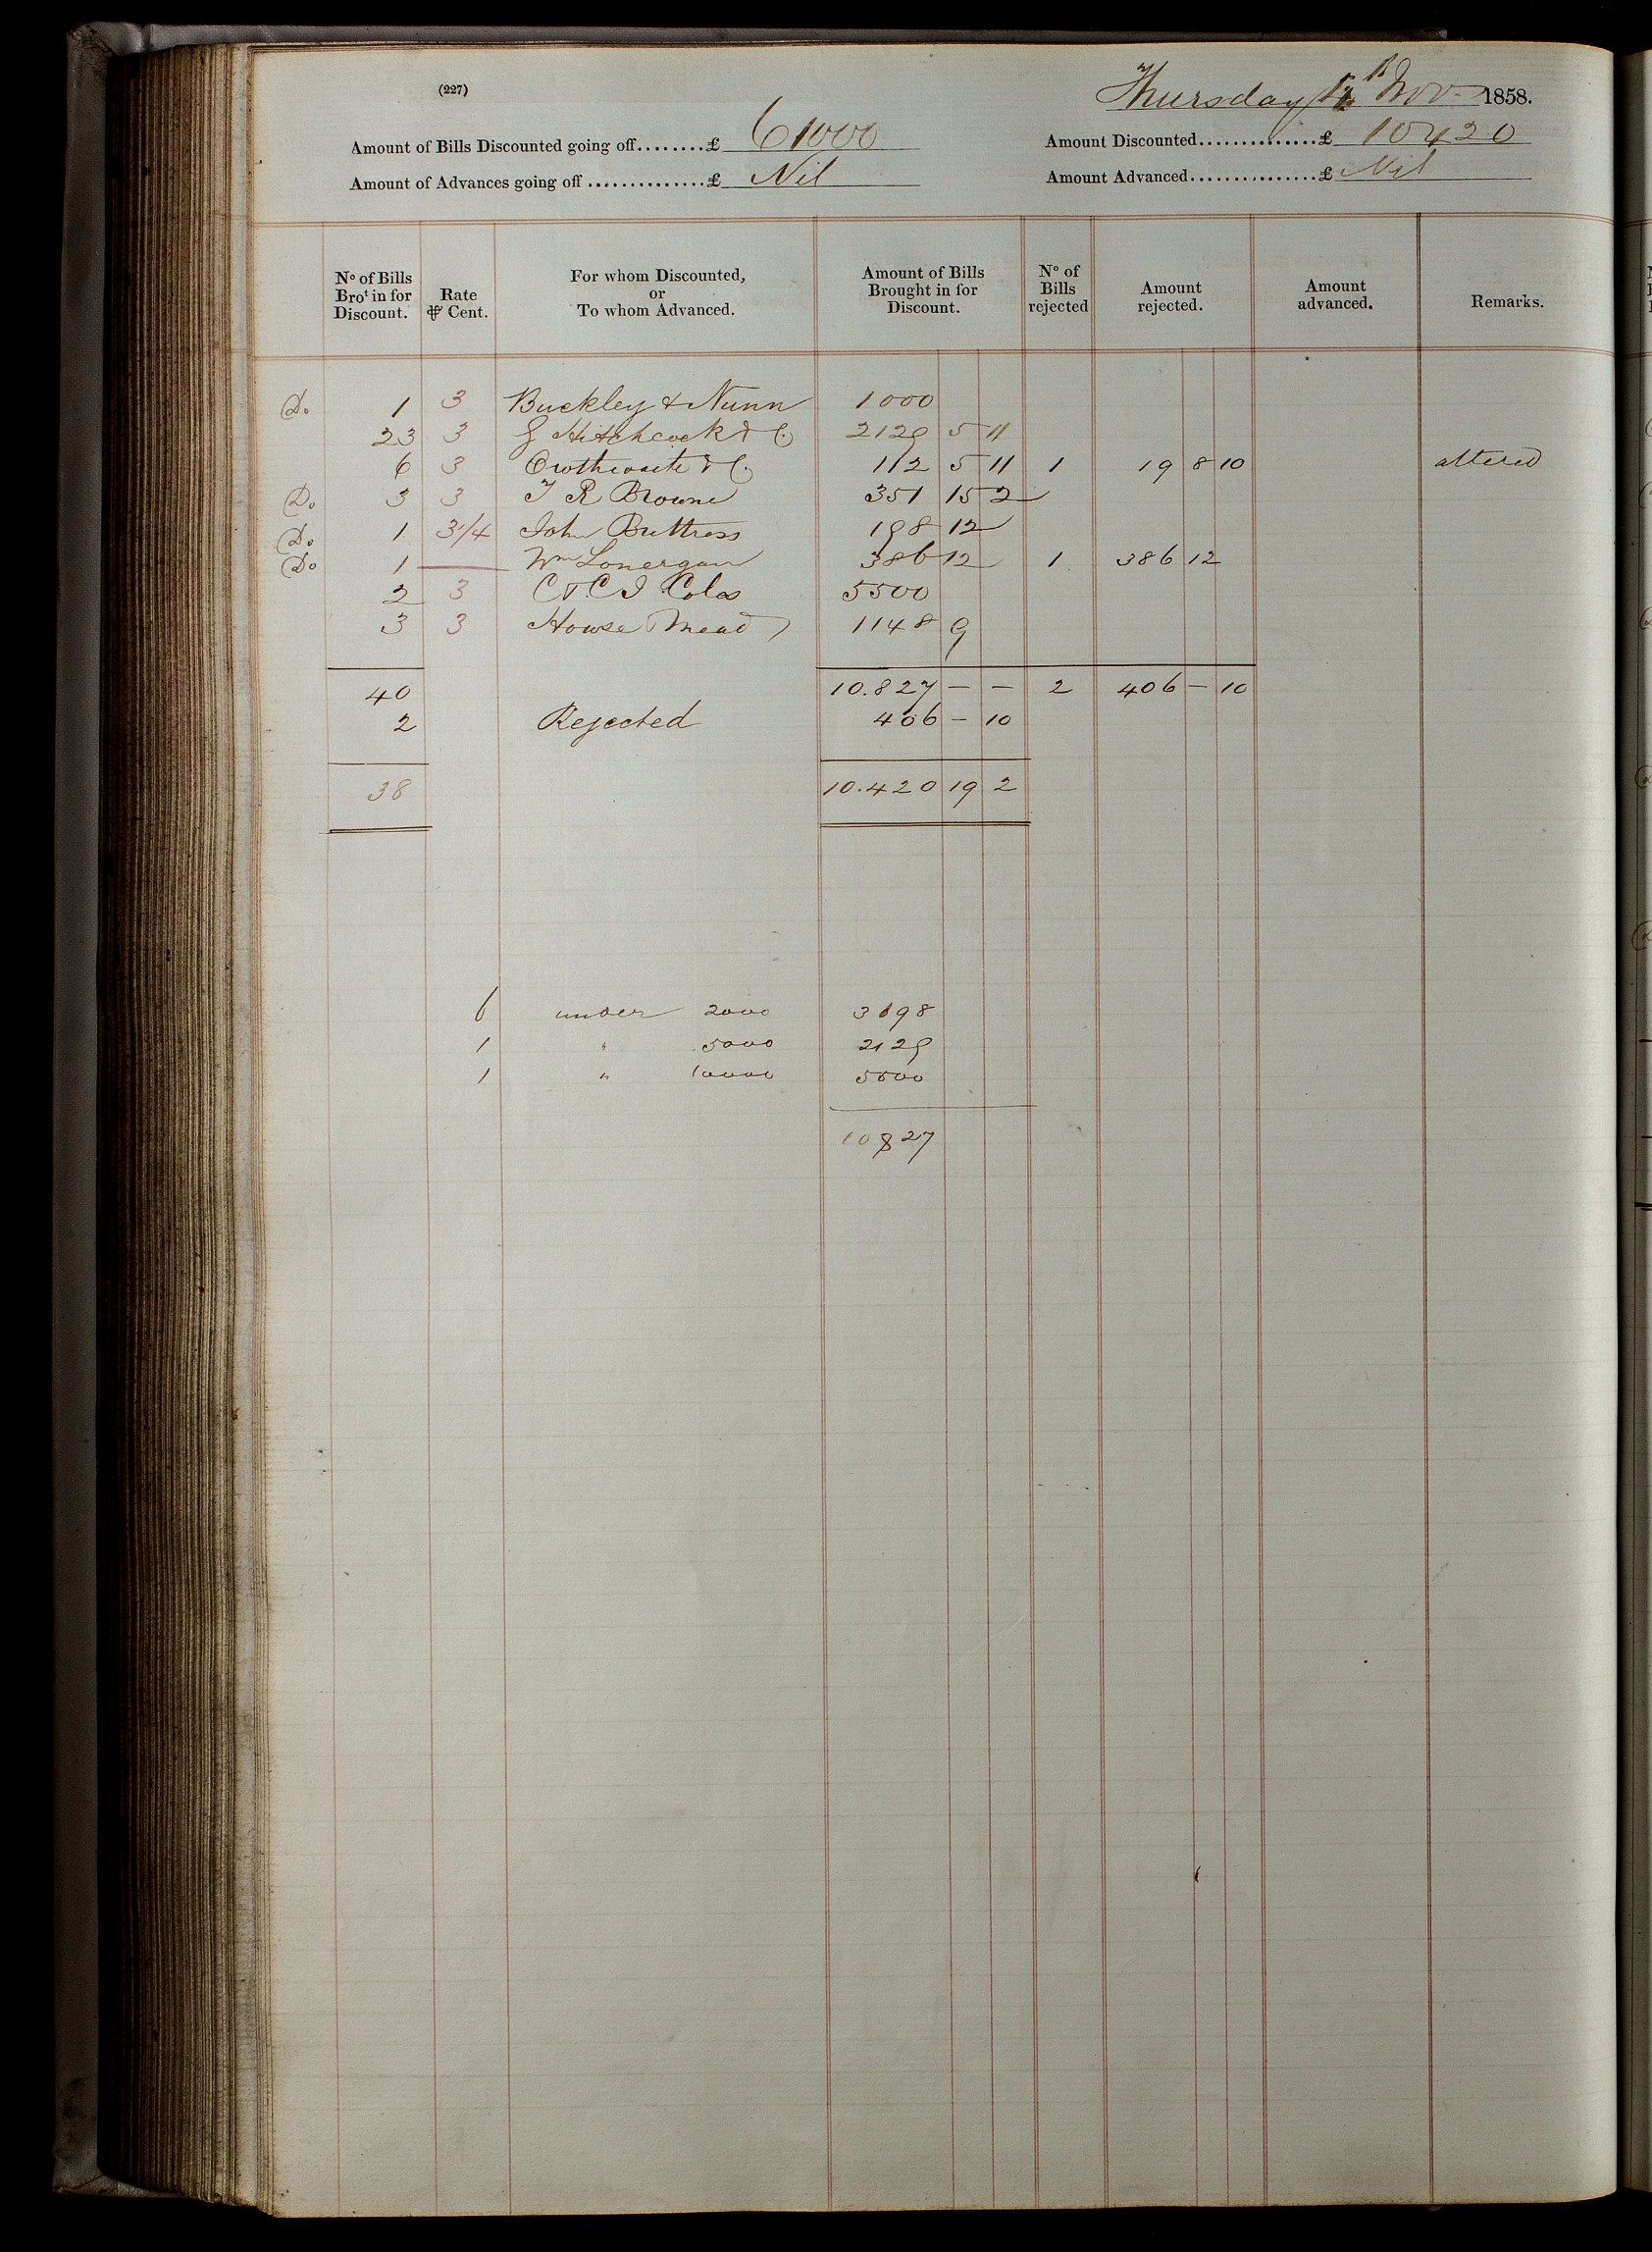 (227)
Thursday Nov 1858.
Amount of Bills Discounted going off........£ 61000 Amount Discounted..............£ 10420
Amount of Advances going off ..............£ Nil Amount Advanced...............£ Nil
No of Bills Brot in for Discount. Rate ⅌ Cent. For whom Discounted, or To whom Advanced. Amount of Bills Brought in for Discount. No of Bills rejected Amount rejected. Amount advanced. Remarks.
Do 1 3 Buckley & Nunn 1000
23 3 G Hitchcock & Co 2129 5 11
6 3 & Co 112 5 11 1 19 8 10 altered
Do 3 3 T R Browne 351 15 2
Do 1 3 1/4 John Buttress 198 12
Do 1 — Wm Lonergan 386 12 1 386 12
2 3 C & C I Coles 5500
3 3 Howse Mead 1148 9
40 10.827 – – 2 406 – 10
2 Rejected 406 – 10
38 10.420 19 2
6 under 2000 3198
1 " 5000 2129
1 " 10000 5500
10827